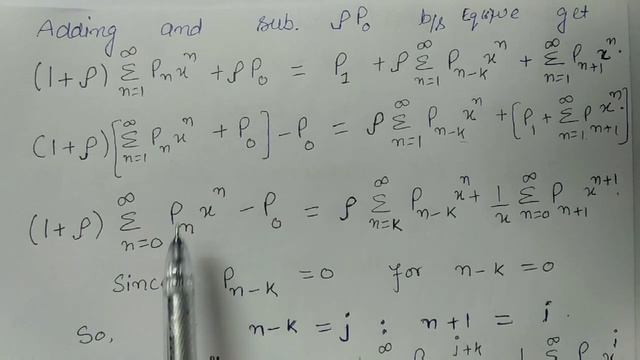 Adding and sub. ρP₀ b/s Eqⁿ we get
(1+ρ) ∑_{n=1}^{∞} P_n x^n + ρP₀ = P₁ + ρ ∑_{n=1}^{∞} P_{n-k} x^n + ∑_{n=1}^{∞} P_{n+1} x^n.
(1+ρ) [∑_{n=1}^{∞} P_n x^n + P₀] - P₀ = ρ ∑_{n=1}^{∞} P_{n-k} x^n + [P₁ + ∑_{n=1}^{∞} P_{n+1} x^n]
(1+ρ) ∑_{n=0}^{∞} P_n x^n - P₀ = ρ ∑_{n=k}^{∞} P_{n-k} x^n + 1/x ∑_{n=0}^{∞} P_{n+1} x^{n+1}.
Since P_{n-k} = 0 for n-k = 0
So, n-k = j : n+1 = j.